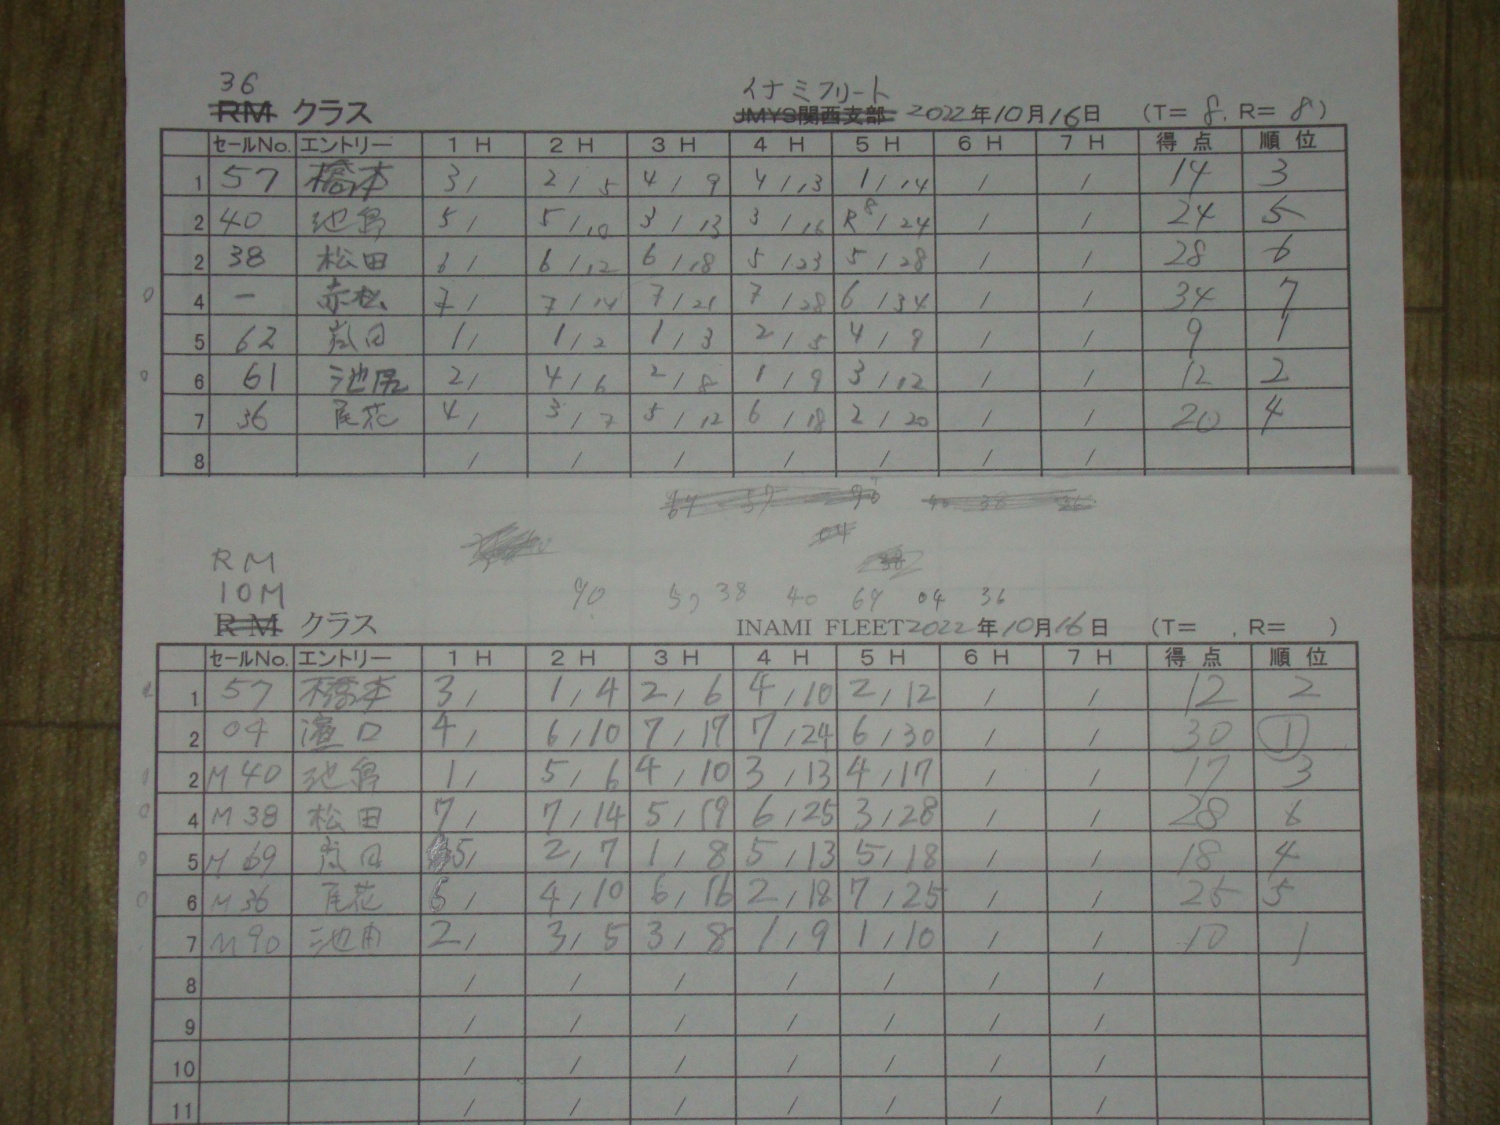 36
イナミフリート
RM クラス JMYS関西支部 2022年10月16日 (T= 8, R= 8)
セールNo. エントリー 1 H 2 H 3 H 4 H 5 H 6 H 7 H 得 点 順 位
1 57 橋本 3/ 2/5 4/9 4/13 1/14 / / 14 3
2 40 池島 5/ 5/10 3/13 3/16 R8/24 / / 24 5
2 38 松田 6/ 6/12 6/18 5/23 5/28 / / 28 6
0 4 - 赤松 7/ 7/14 7/21 7/28 6/34 / / 34 7
5 62 1/ 1/2 1/3 2/5 4/9 / / 9 1
0 6 61 池尻 2/ 4/6 2/8 1/9 3/12 / / 12 2
7 36 尾花 4/ 3/7 5/12 6/18 2/20 / / 20 4
8 / / / / / / /
64 57 90 40 38 36
04
38
RM
10M
90 57 38 40 69 04 36
RM クラス INAMI FLEET 2022年10月16日 (T= , R= )
セールNo. エントリー 1 H 2 H 3 H 4 H 5 H 6 H 7 H 得 点 順 位
1 57 橋本 3/ 1/4 2/6 4/10 2/12 / / 12 2
2 04 濱口 4/ 6/10 7/17 7/24 6/30 / / 30 ①
2 M40 池島 1/ 5/6 4/10 3/13 4/17 / / 17 3
0 4 M38 松田 7/ 7/14 5/19 6/25 3/28 / / 28 6
0 5 M69 5/ 2/7 1/8 5/13 5/18 / / 18 4
0 6 M36 尾花 6/ 4/10 6/16 2/18 7/25 / / 25 5
7 M90 2/ 3/5 3/8 1/9 1/10 / / 10 1
8 / / / / / / /
9 / / / / / / /
10 / / / / / / /
11 / / / / / / /